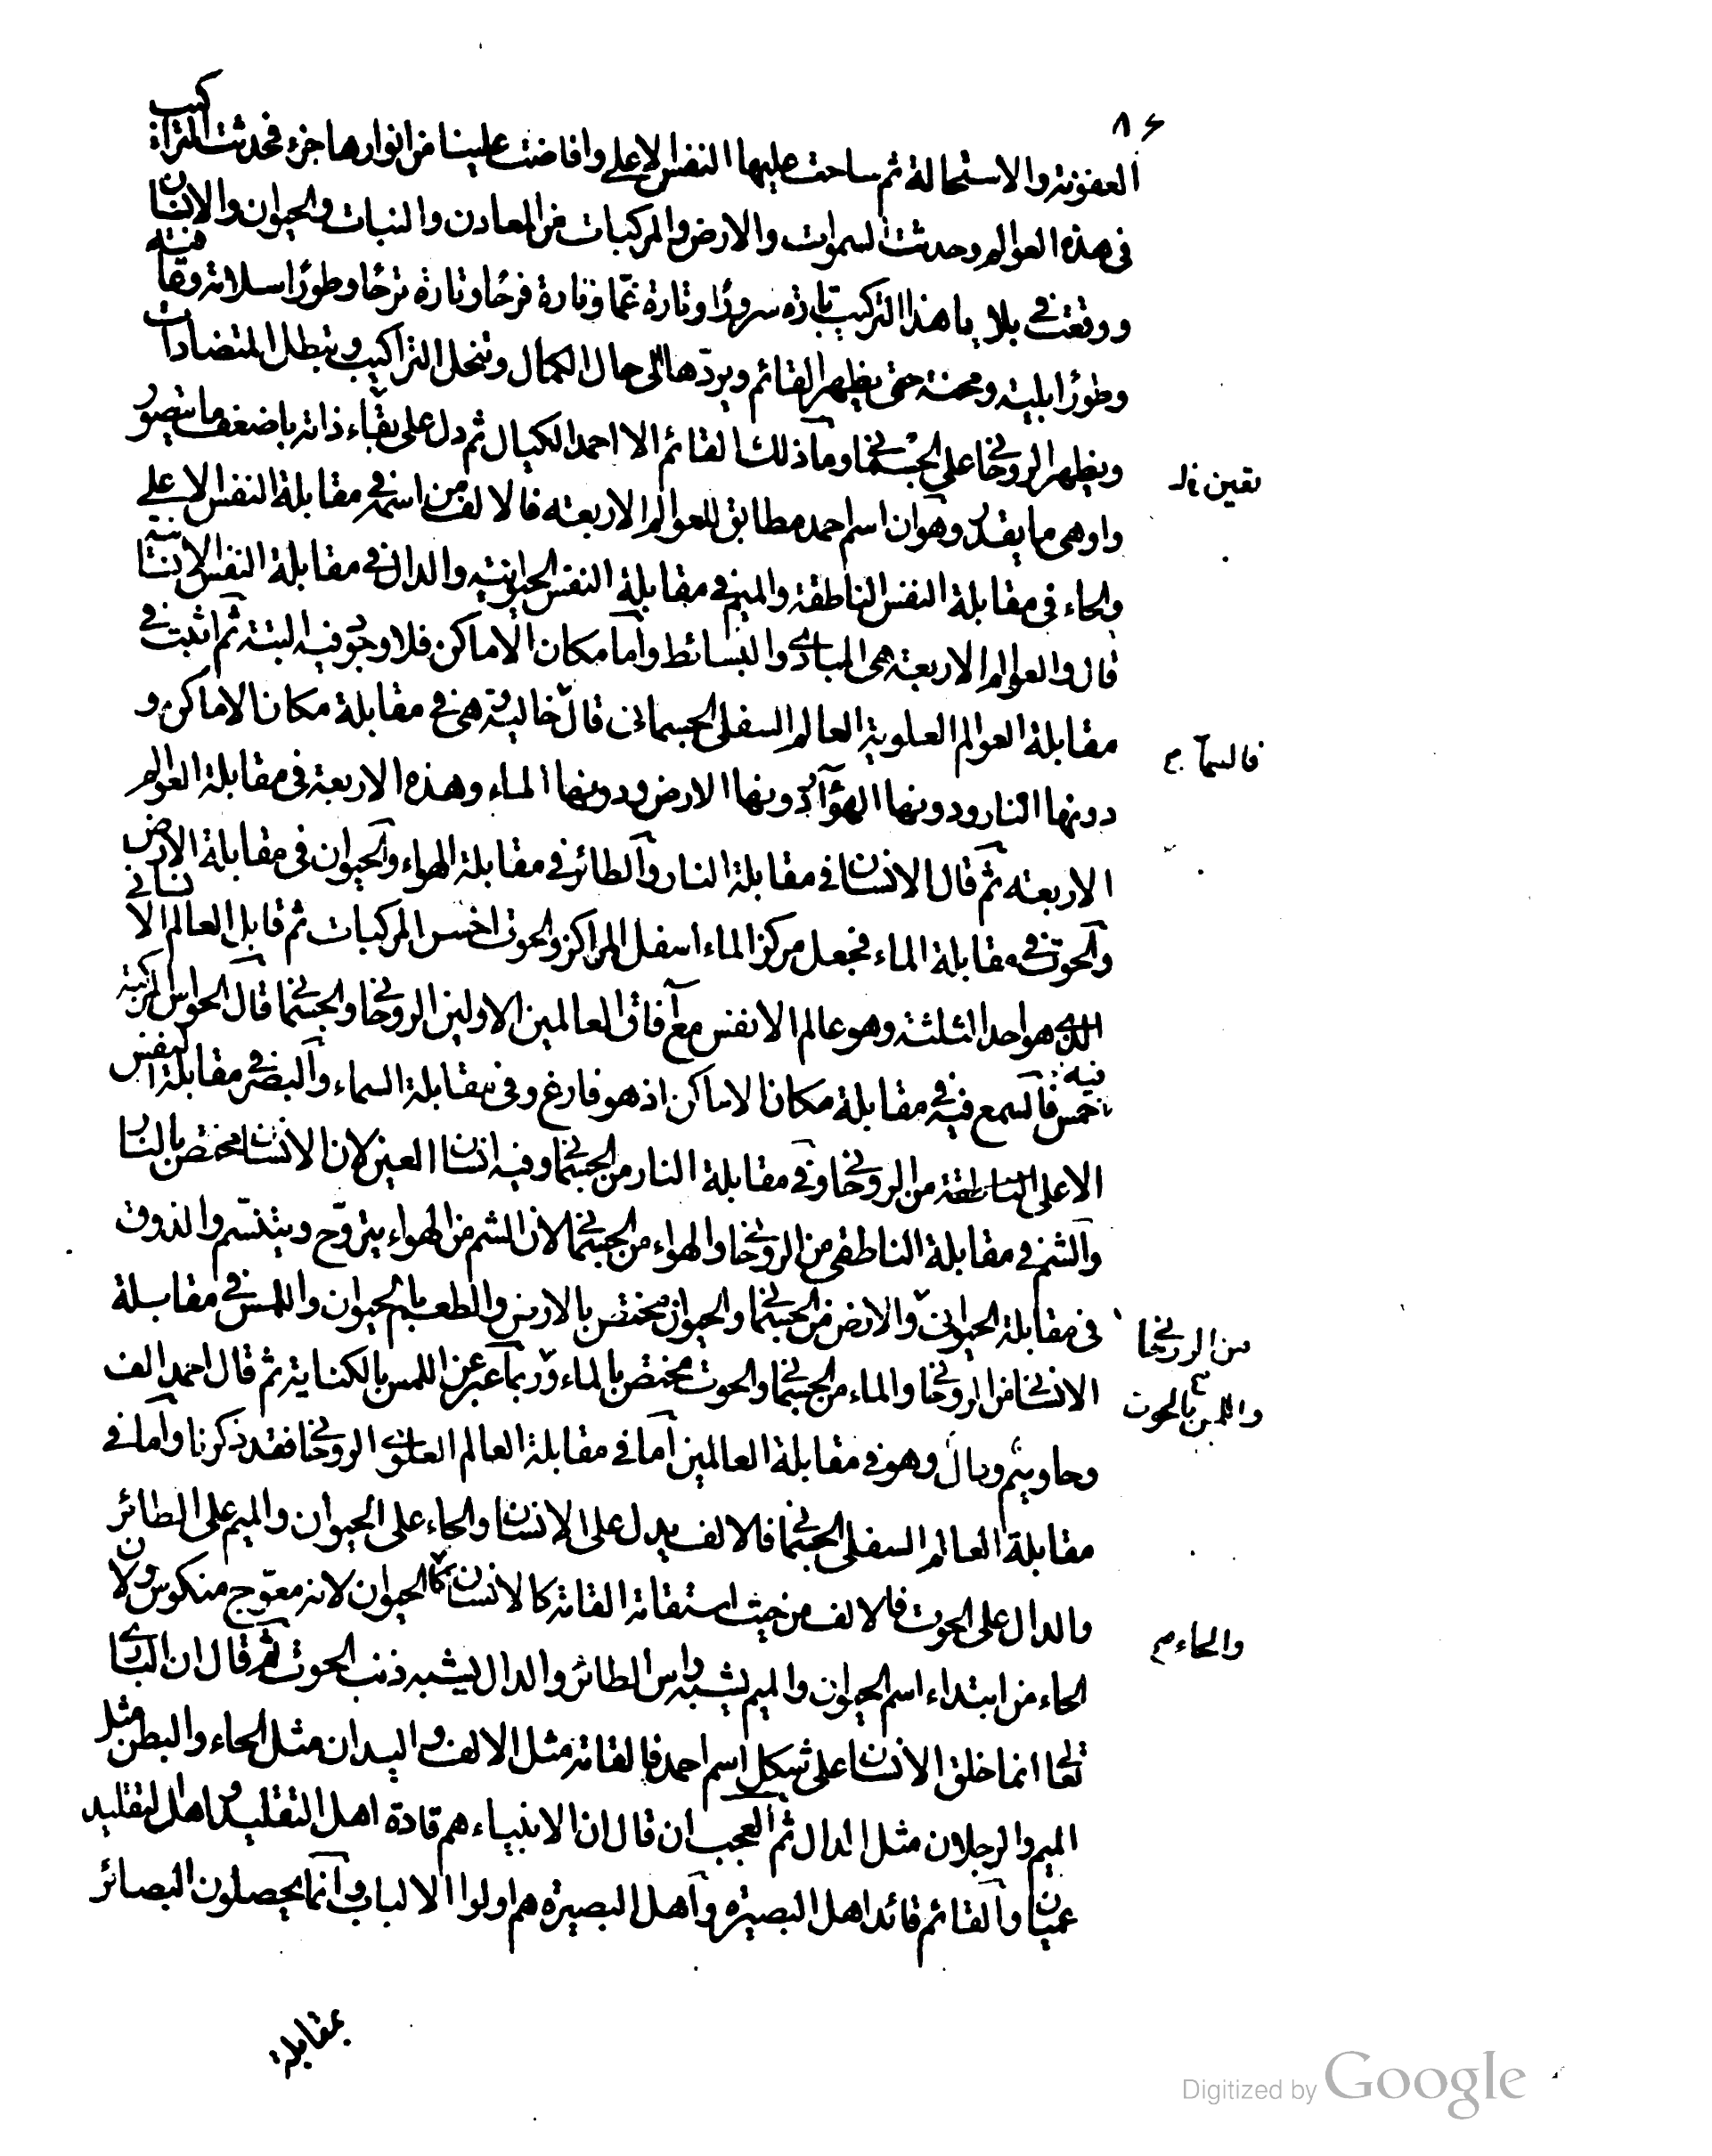 ٨۶
العفونة والاستحالة ثم ساحت عليها النفس الاعلى وافاضت علينا من انوارها جزء فحدثت التراكيب
فى هذه العوالم وحدثت السموات والارض والمركبات من المعادن والنبات والحيوان والانسان
ووقعت فى بلايا هذا التركيب تارة سرورًا وتارة غمّا وتارة فرحًا وتارة ترحًا وطورًا سلامة وعافية
وطورًا بلية ومحنة حتى يظهر القائم ويردّها الى حال الكمال وتنحل التراكيب وتبطل المتضادات
ويظهر الروحانى على الجسمانى وما ذلك القائم الا احمد الكيال ثم دل على ذاته باضعف ما يتصور
واوهى ما يقدر وهو ان اسم احمد مطابق للعوالم الاربعة فالالف من اسمه فى مقابلة النفس الاعلى
والحاء فى مقابلة النفس الناطقة والميم فى مقابلة النفس الحيوانية والدال فى مقابلة النفس الانسانية
قال والعوالم الاربعة هى المبادى والبسائط واما مكان الاماكن فلا وجود فيه البتة ثم اثبت فى
مقابلة العوالم العلوية العالم السفلى الجسمانى قال خالية هى فى مقابلة مكان الاماكن و
دونها النار ودونها الهوآء ودونها الارض ودونها الماء وهذه الاربعة فى مقابلة العوالم
الاربعة ثم قال الانسان فى مقابلة النار والطائر فى مقابلة الهواء والحيوان فى مقابلة الارض
والحوت فى مقابلة الماء فجعل مركز الماء اسفل المراكز والحوت اخس المركبات ثم قابل العالم الانسانى
الذى هو احد الثلثة وهو عالم الانفس مع آفاق العالمين الاولين الروحانى والجسمانى قال الحواس المركبة فيه
خمس فالسمع فيه فى مقابلة مكان الاماكن اذ هو فارغ وفى مقابلة السماء والبصر فى مقابلة النفس
الاعلى من الروحانى وفى مقابلة النار من الجسمانى وفيه انسان العين لان الانسان مختص بالنار
والشم فى مقابلة الناطقى من الروحانى والهواء من الجسمانى لان الشم من الهواء يتروّح ويتنسّم والذوق
فى مقابلة الحيوانى والارض من الجسمانى والحيوان مختص بالارض والطعم بالحيوان واللمس فى مقابلة
الانسانى من الروحانى والماء من الجسمانى والحوت مختص بالماء وربما عبر عن اللمس بالكناية ثم قال احمد الف
وحاء وميم ودال وهو فى مقابلة العالمين اما فى مقابلة العالم العلوى الروحانى فقد ذكرنا واما فى
مقابلة العالم السفلى الجسمانى فالالف يدل على الانسان والحاء على الحيوان والميم على الطائر
والدال على الحوت فالالف من حيث استقامة القامة كالانسان كالحيوان لانه معوّج منكوس ولان
الحاء من ابتداء اسم الحيوان والميم يشبه راس الطائر والدال يشبه ذنب الحوت ثم قال ان البارى
تعالى انما خلق الانسان على شكل اسم احمد فالقامة مثل الالف واليدان مثل الحاء والبطن مثل
الميم والرجلان مثل الدال ثم العجب ان قال ان الانبياء هم قادة اهل التقليد واهل التقليد
عميان والقائم قائد اهل البصيرة واهل البصيرة هم اولوا الالباب وانما يحصلون البصائر
فالسمآء
من الروحانى
واللمس بالحوت
والحاء
بمقابلة
Digitized by Google